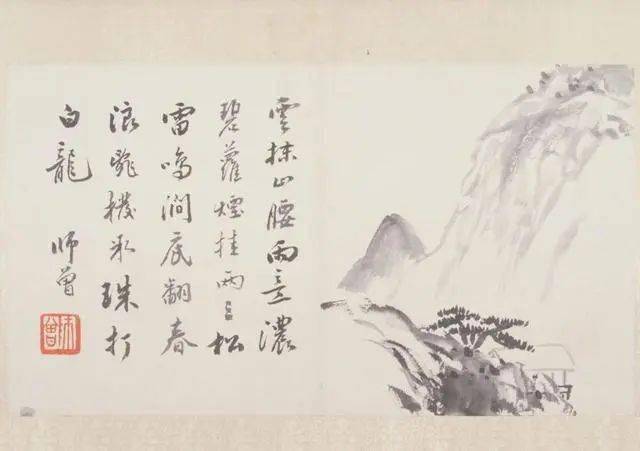 雲抹山腰雨意濃
碧蘿煙挂兩三松
雷鳴澗底翻春
浪亂撥冰珠打
白龍 師曾
師曾